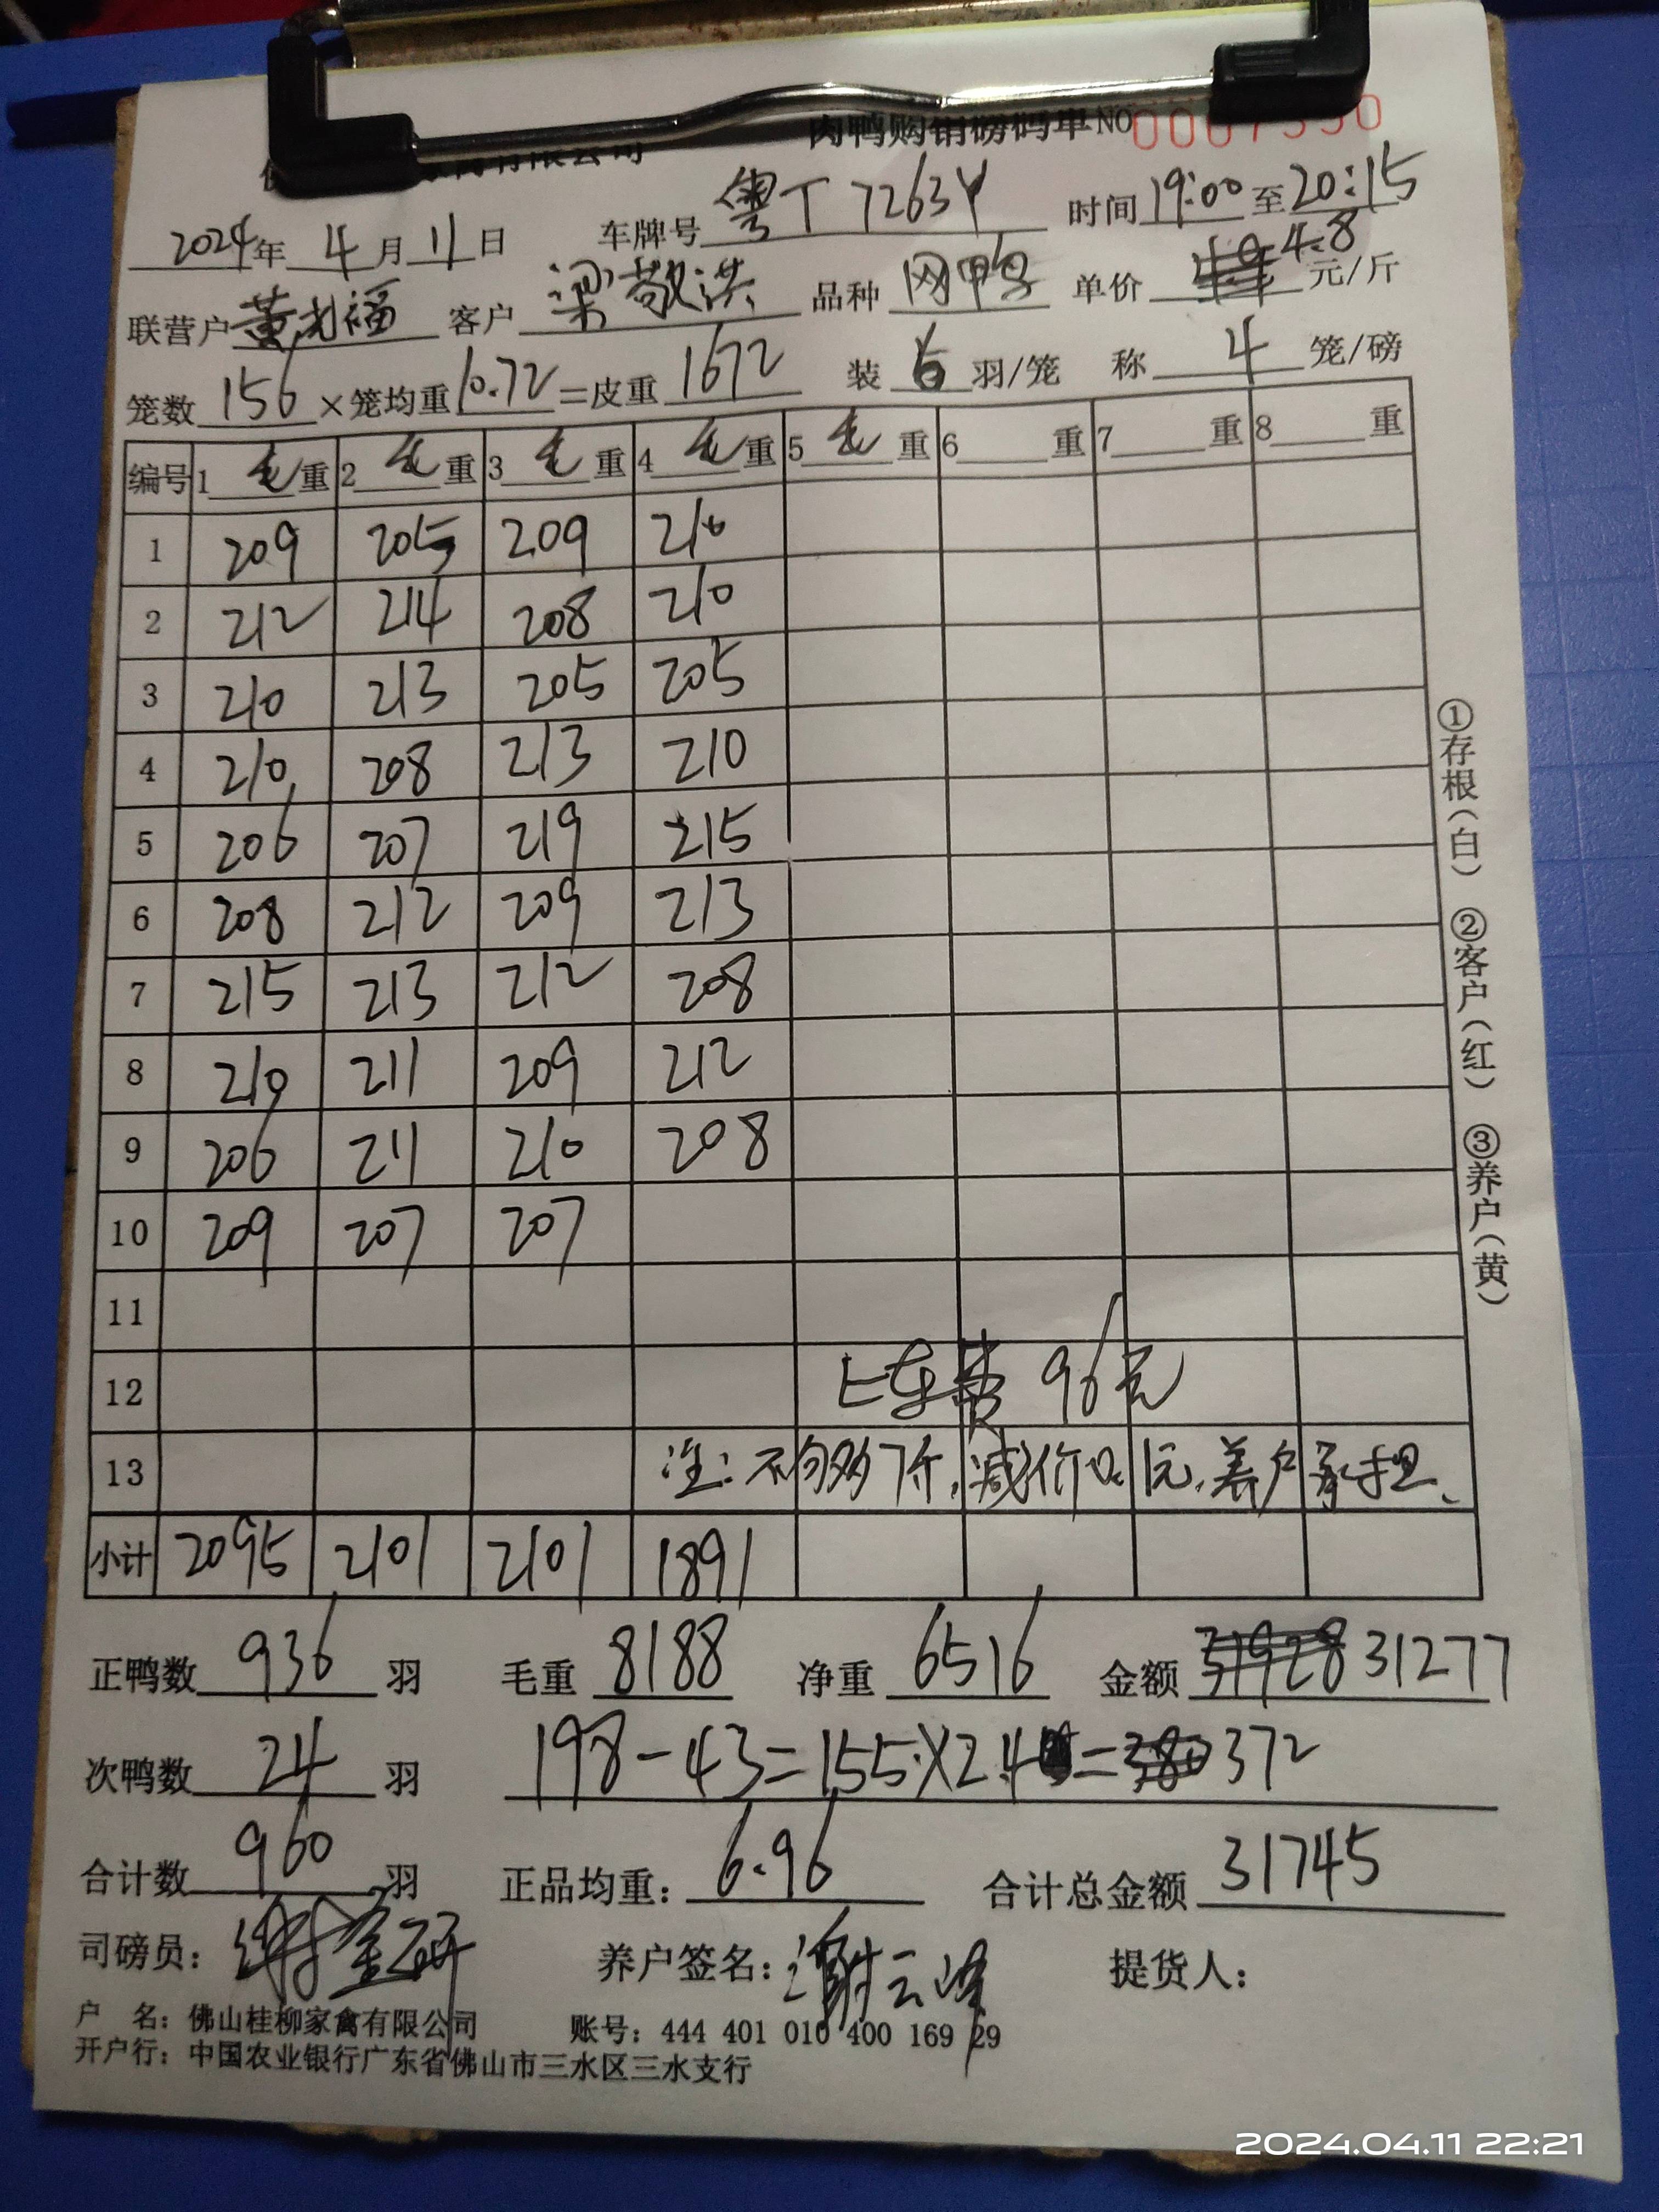 肉鸭购销磅码单 NO 0007330
2024年 4月 11日 车牌号 粤T 7263Y 时间 19:00 至 20:15
联营户 黄 福 客户 梁敬洪 品种 网鸭 单价 4.9 4.8 元/斤
笼数 156 ×笼均重 10.72 =皮重 1672 装 6 羽/笼 称 4 笼/磅
编号 1 毛 重 2 毛 重 3 毛 重 4 毛 重 5 毛 重 6 重 7 重 8 重
1 209 205 209 210
2 212 214 208 210
3 210 213 205 205
4 210 208 213 210
5 206 207 219 215
6 208 212 209 213
7 215 213 212 208
8 210 211 209 212
9 206 211 210 208
10 209 207 207
11
12 上车费 96元
13 注:不够7斤,减价0.1元,养户承担、
小计 2095 2101 2101 1891
正鸭数 936 羽 毛重 8188 净重 6516 金额 31928 31277
次鸭数 24 羽 198-43=155×2.4=380 372
合计数 960 羽 正品均重: 6.96 合计总金额 31745
司磅员: 谢金研 养户签名: 谢云峰 提货人:
户 名: 佛山桂柳家禽有限公司 账号: 444 401 010 400 169 29
开户行: 中国农业银行广东省佛山市三水区三水支行
①存根(白) ②客户(红) ③养户(黄)
2024.04.11 22:21